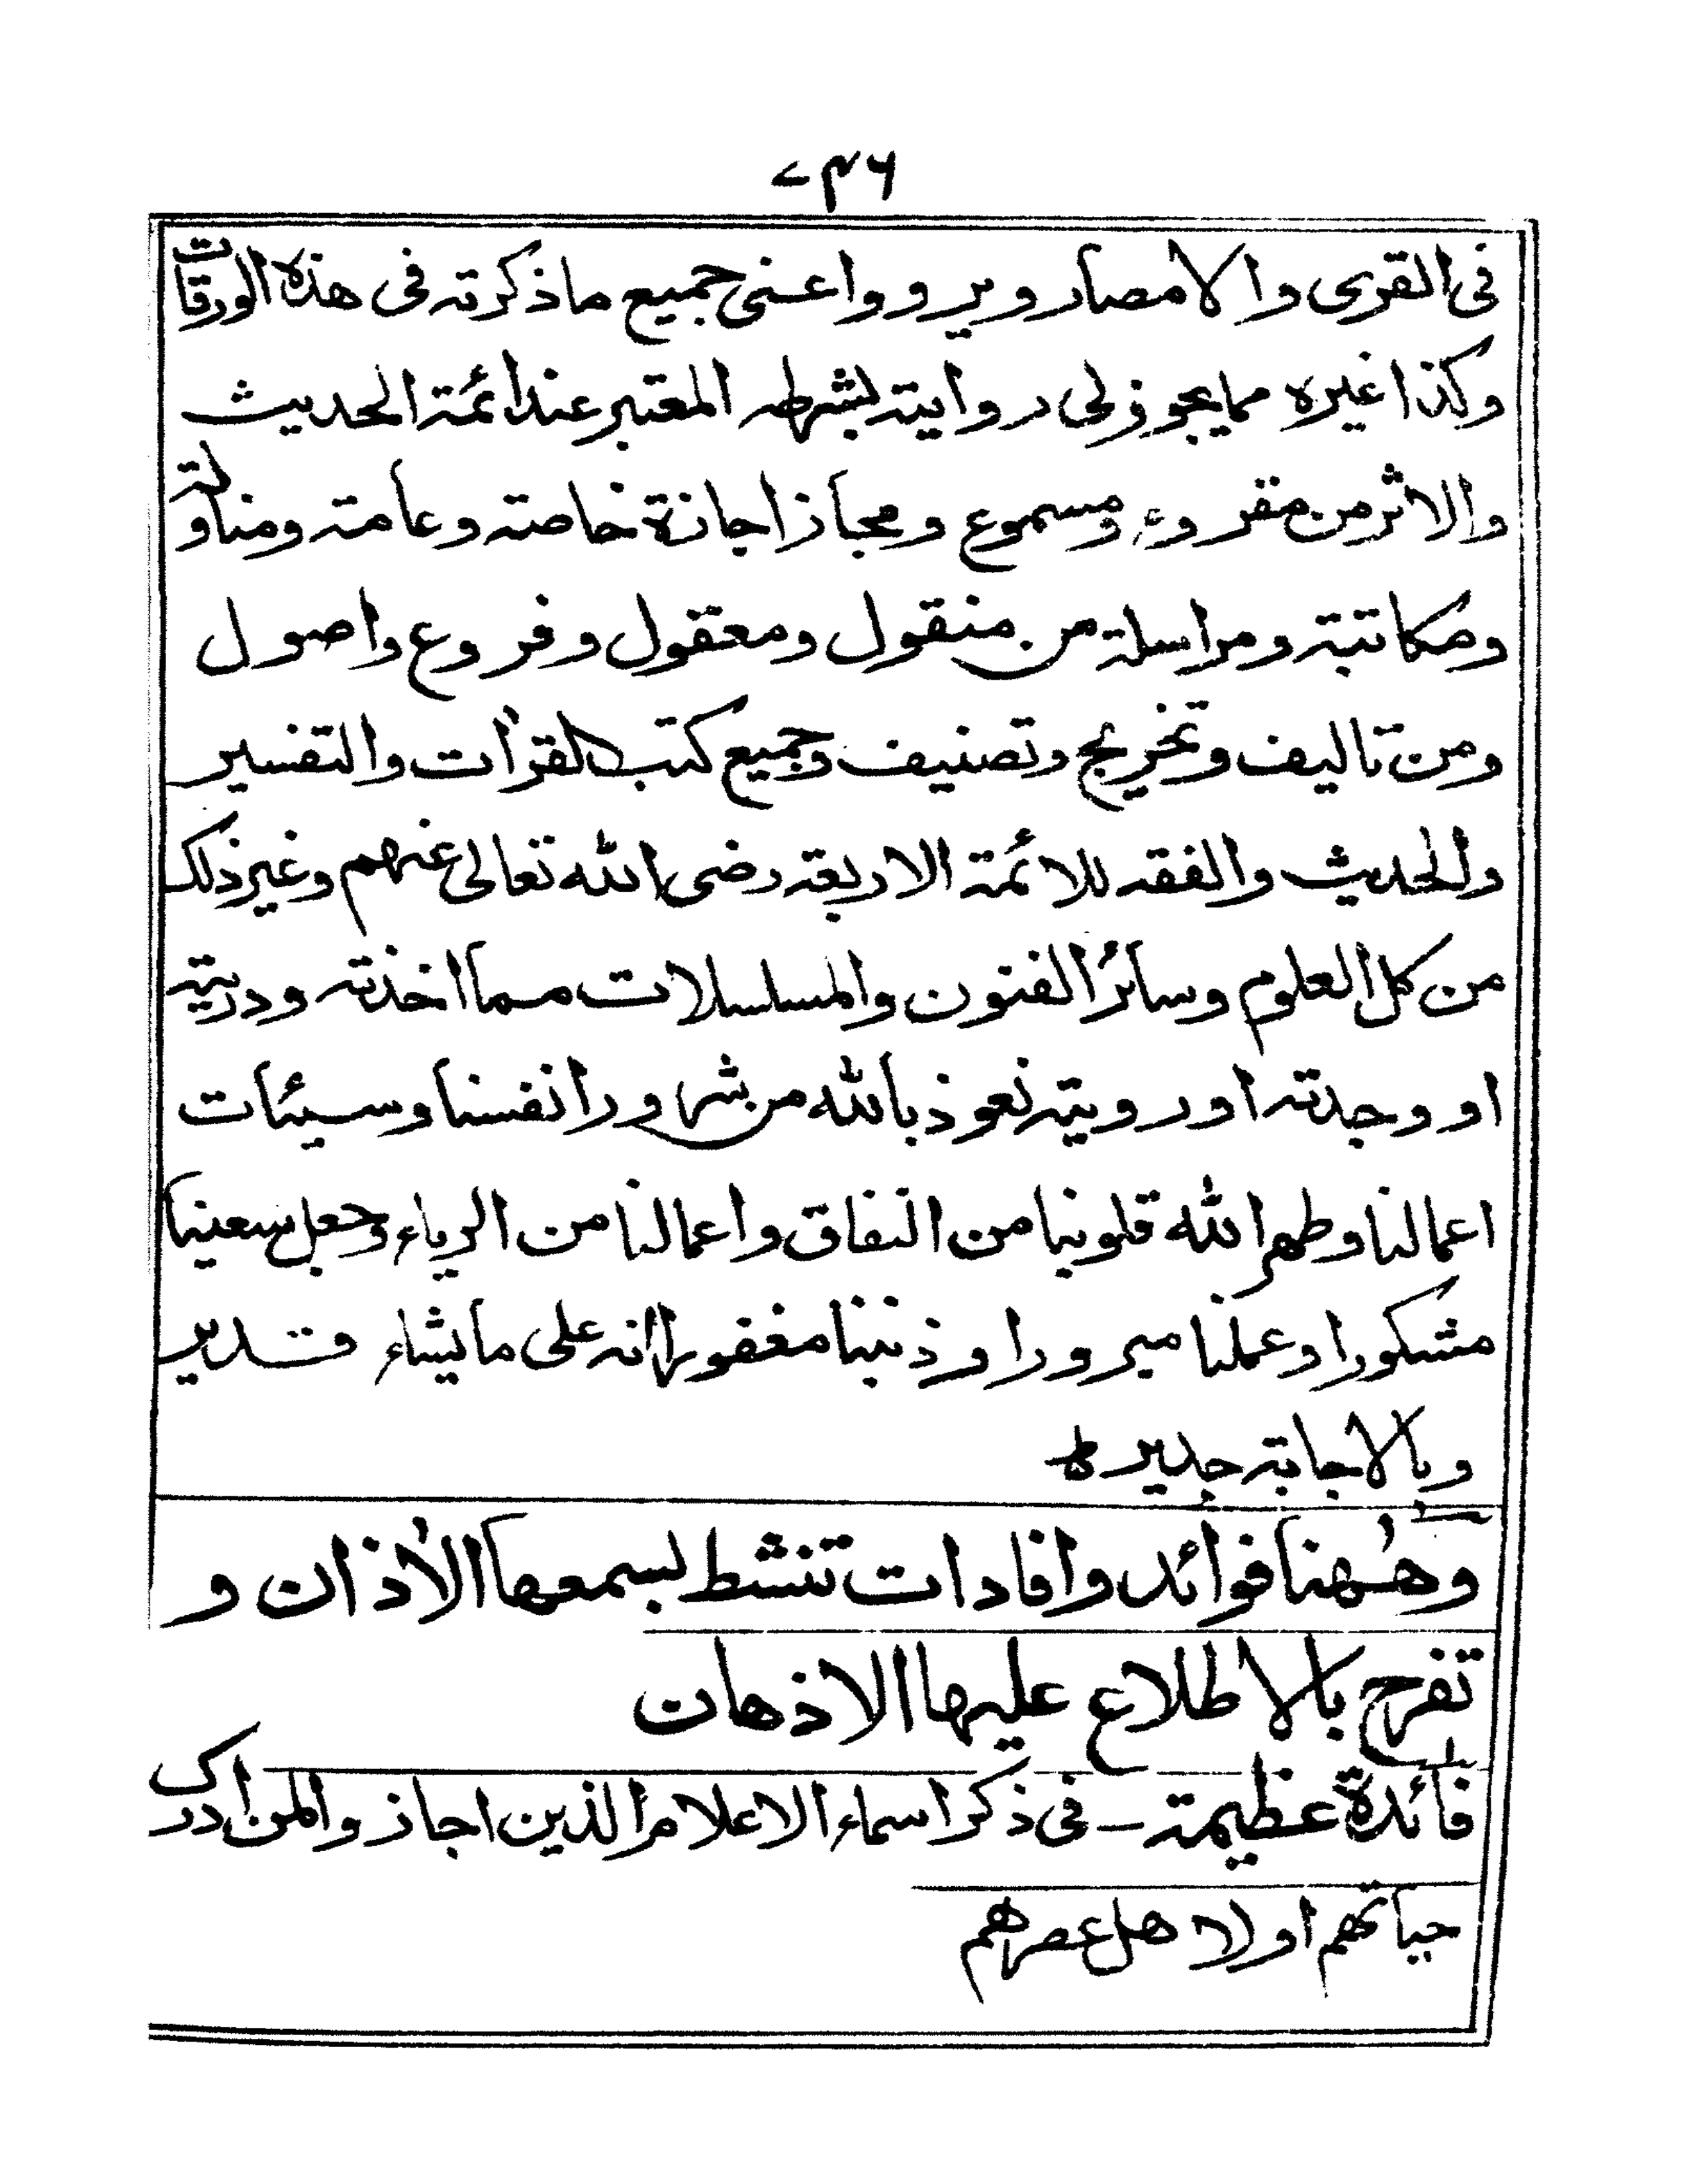 ۷۴۶
فى القرى والامصار ويرووا عنى جميع ما ذكرته فى هذه الورقات
وكذا غيره مما يجوز لى روايته بشرطه المعتبر عند ائمة الحديث
والاثر من مقروء ومسموع ومجاز اجازة خاصة وعامة ومناولة
ومكاتبة ومراسلة من منقول ومعقول وفروع واصول
ومن تاليف وتخريج وتصنيف وجميع كتب القرأت والتفسير
والحديث والفقه للائمة الاربعة رضى الله تعالى عنهم وغير ذلك
من كل العلوم وسائر الفنون والمسلسلات مما اخذته ودريته
او وجدته او رويته نعوذ بالله من شرور انفسنا وسيئات
اعمالنا وطهر الله قلوبنا من النفاق واعمالنا من الرياء وجعل سعينا
مشكورا وعملنا مبرورا وذنبنا مغفورا انه على ما يشاء قدير
وبالاجابة جدير ط
وههنا فوائد وافادات تنشط لسمعها الأذان و
تفرح بالاطلاع عليها الاذهان
فائدة عظيمة - فى ذكر اسماء الاعلام الذين اجازوا لمن ادرك
حياتهم او لاهل عصرهم